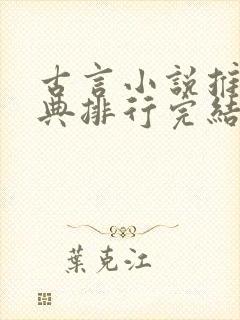 古言小說推
典排行完結
葉克江